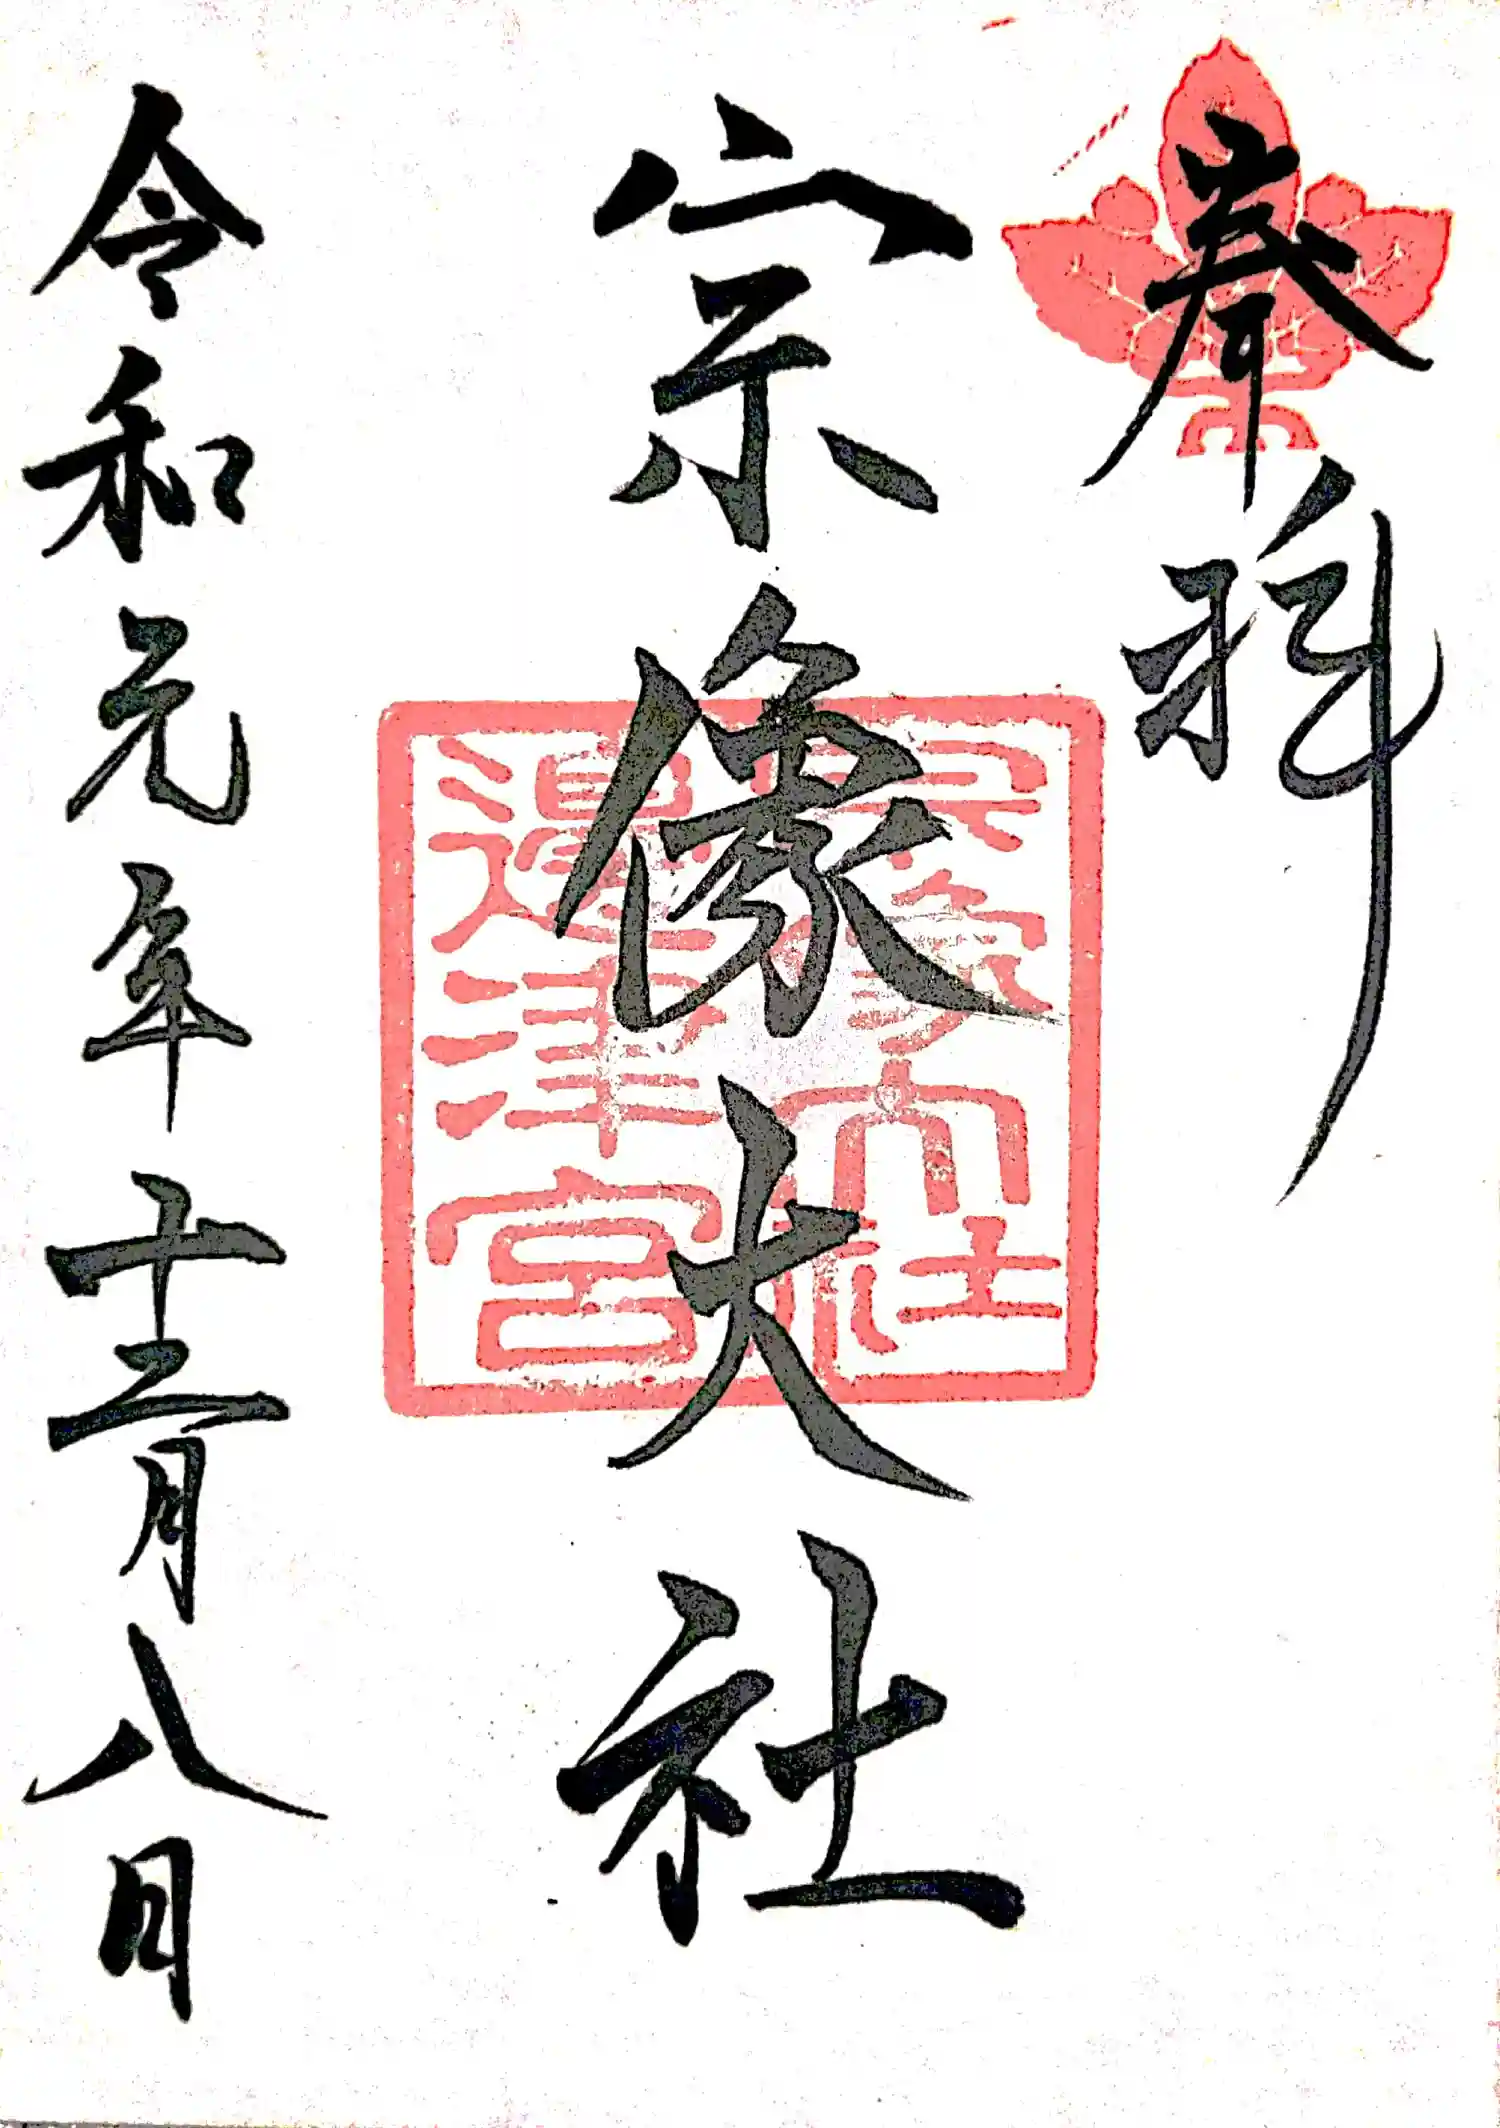 奉拜
宗像大社
宗像大社
邊津宮
令和元年十二月八日